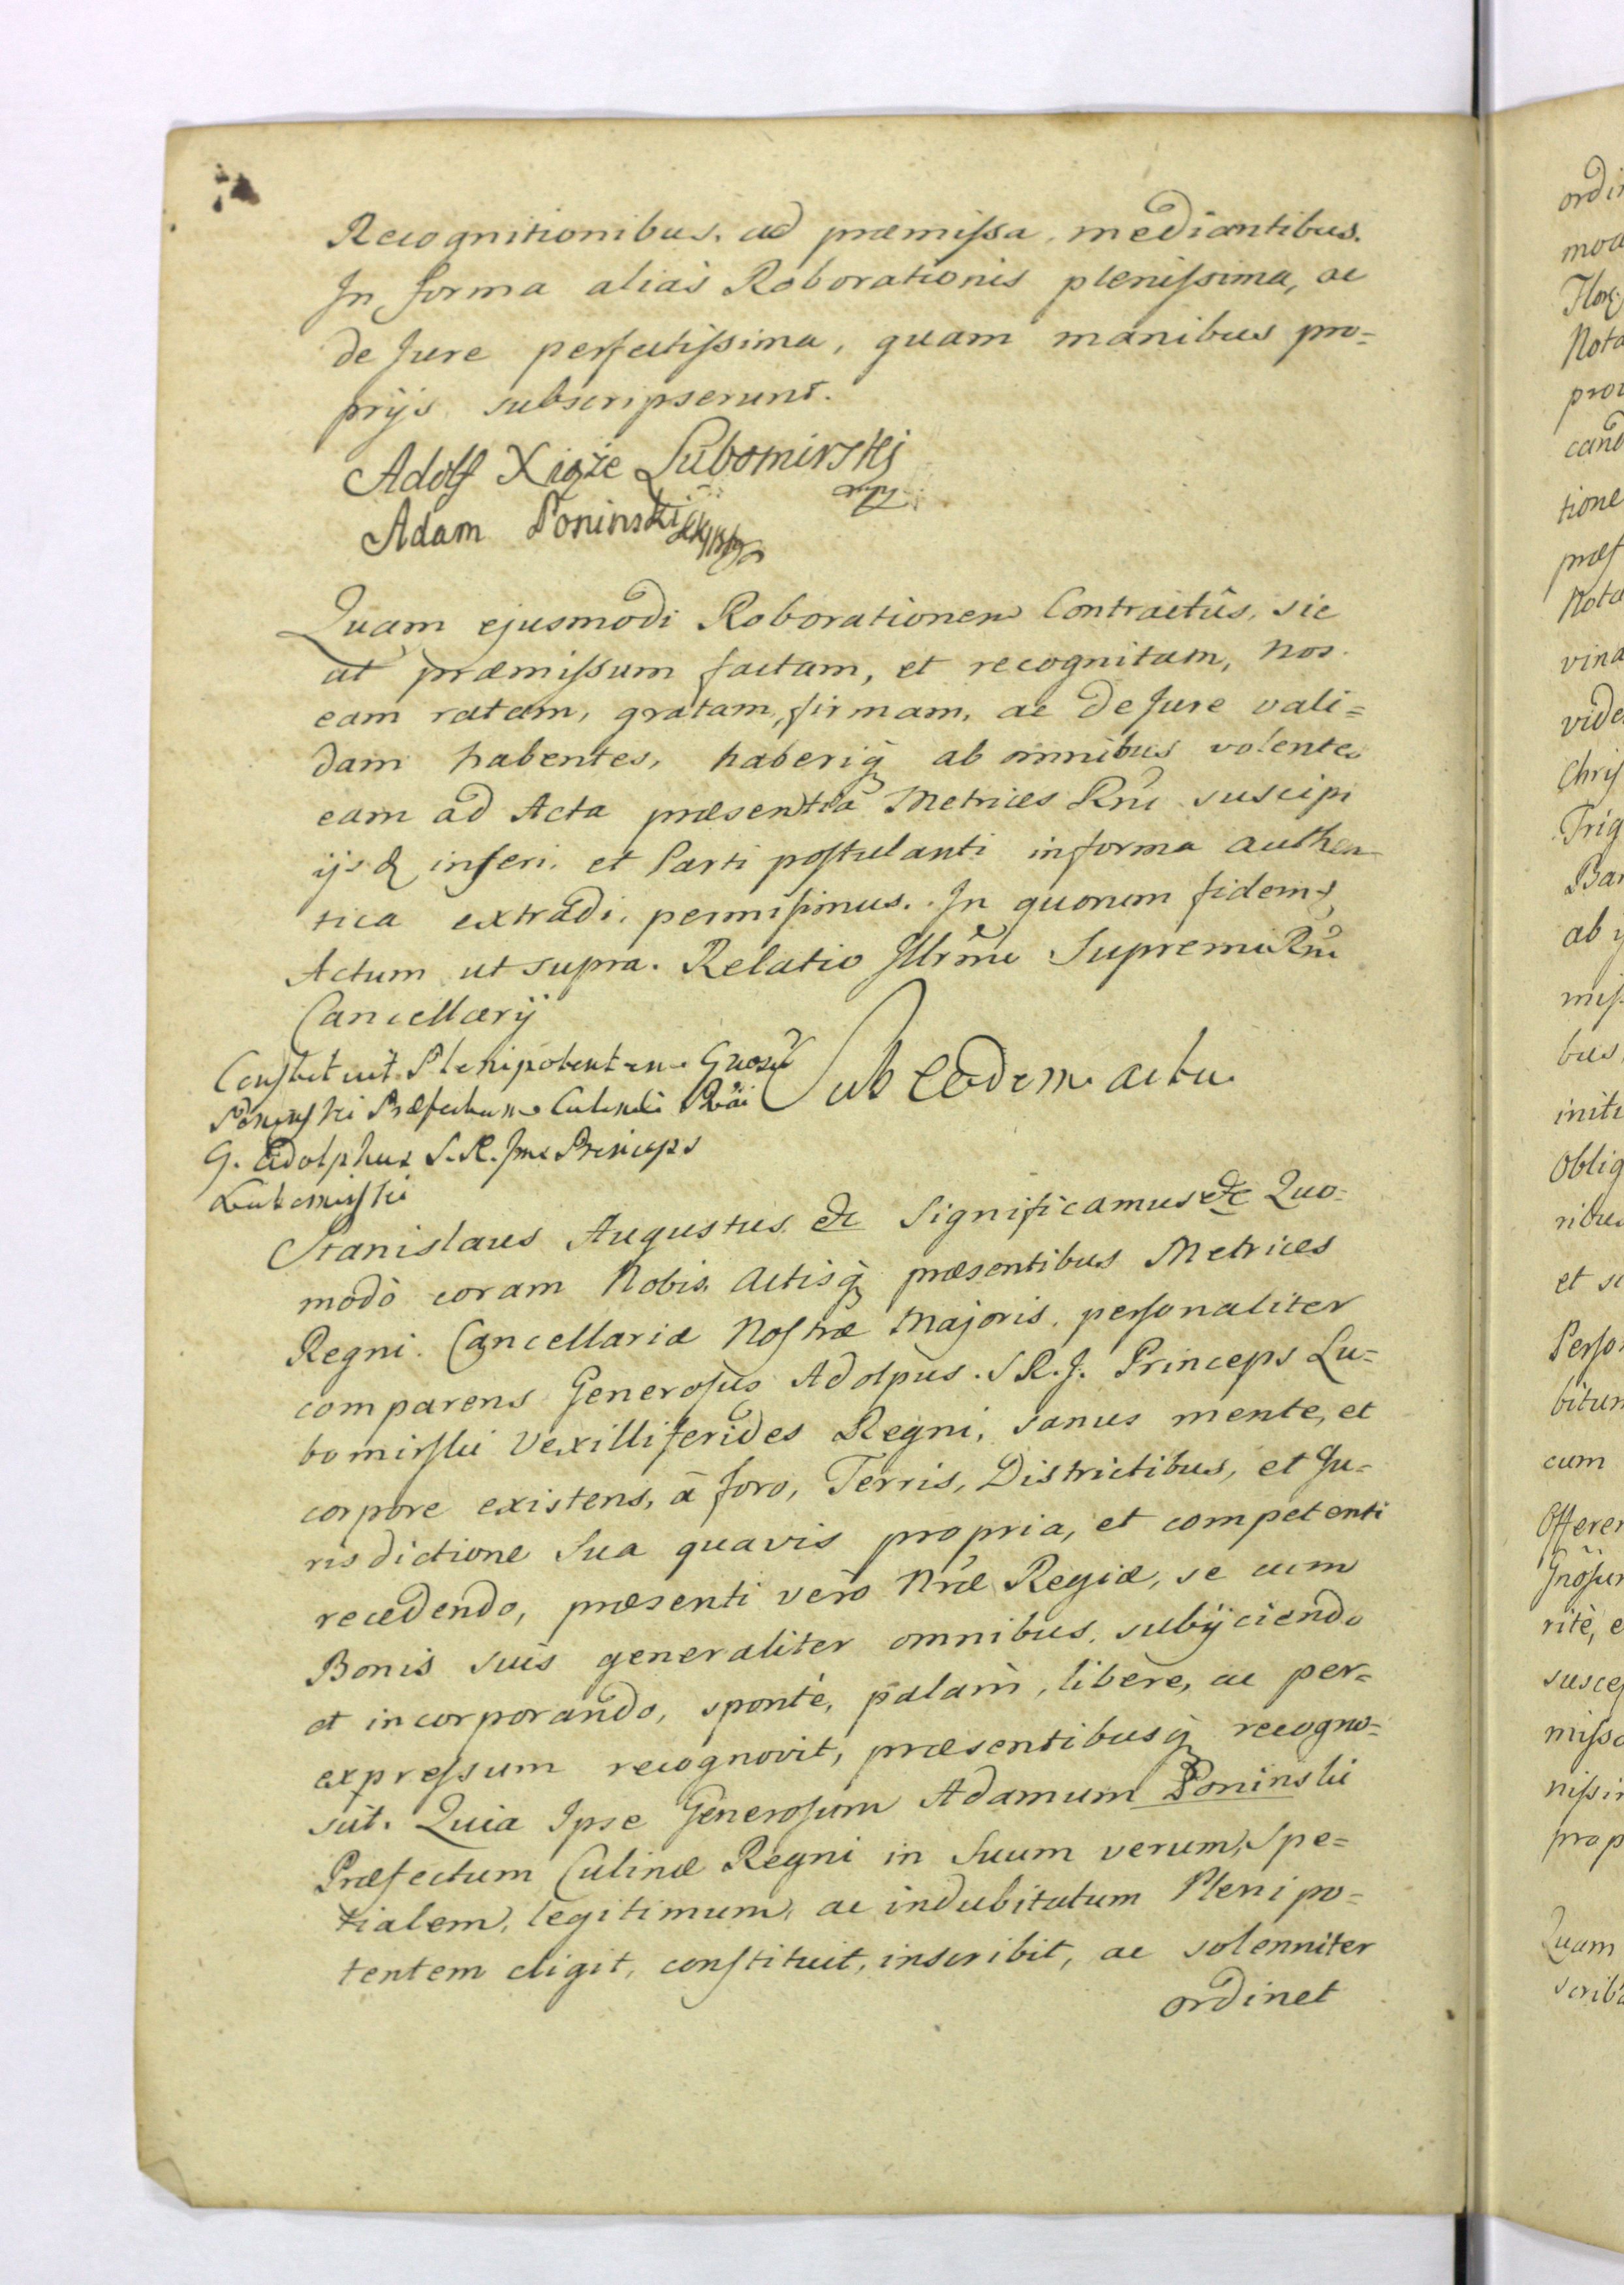 Recognitionibus, ad præmiſsa, mediantibus.
In forma aliàs Roborationis pleniſsima, ac
de Jure perfectiſsima, quam manibus pro=
prijs subscripserunt.
Adolf Xiąże Lubomirski
mpp
Adam Poninski
Quam ejusmodi Roborationem Contractûs, sic
ut præmiſsum factam, et recognitam, Nos
eam ratam, gratam, firmam, ac de Jure vali=
dam habentes, haberiq ab omnibus volentes
eam ad Acta præsentia Metrices Rni suscipi
ijsq inſeri, et Parti poſtulanti in forma authen
tica extradi, permiſimus. In quorum fidem
Actum ut supra. Relatio Illrmi Supremi Rni
Cancellarij
Conſtituit Plenipotentem Gnosū
Poninſki Præfectum Culinæ
G. Adolphus S. R. Ime Princeps
Lubomirſki
Sub eodem actu
Stanislaus Augustus &c Significamus &c Quo=
modò coram Nobis, Actisq præsentibus Metrices
Regni Cancellariæ Noſtræ Majoris, perſonaliter
comparens Generoſus Adolpus S R. J. Princeps Lu=
bomirſki Vexilliferides Regni, sanus mente, et
corpore existens, à foro, Terris, Districtibus, et Ju=
risdictione Sua quavis propria, et competenti
recedendo, præsenti verò Nræ Regiæ, se cum
Bonis suis generaliter omnibus, subijciendo
et incorporando, spontè, palàm, liberè, ac per=
expreſsum recognovit, præsentibusq recogno=
scit. Quia Ipse Generoſum Adamum Poninski
Præfectum Culinæ Regni in Suum verum, Spe=
tialem, legitimum, ac indubitatum Plenipo=
tentem eligit, conſtituit, inscribit, ac solenniter
ordinet
ordi
moa
Nota
prov
cand
tione
præſ
Nota
vina
vide
Chriſ
Trig
Bar
ab
miſ
bus
initi
Oblig
ribus
et sc
Perſo
bitur
cum
Offerer
Gnoſur
ritè, e
suscep
miſsa
niſsi
prop
Quam
scrib